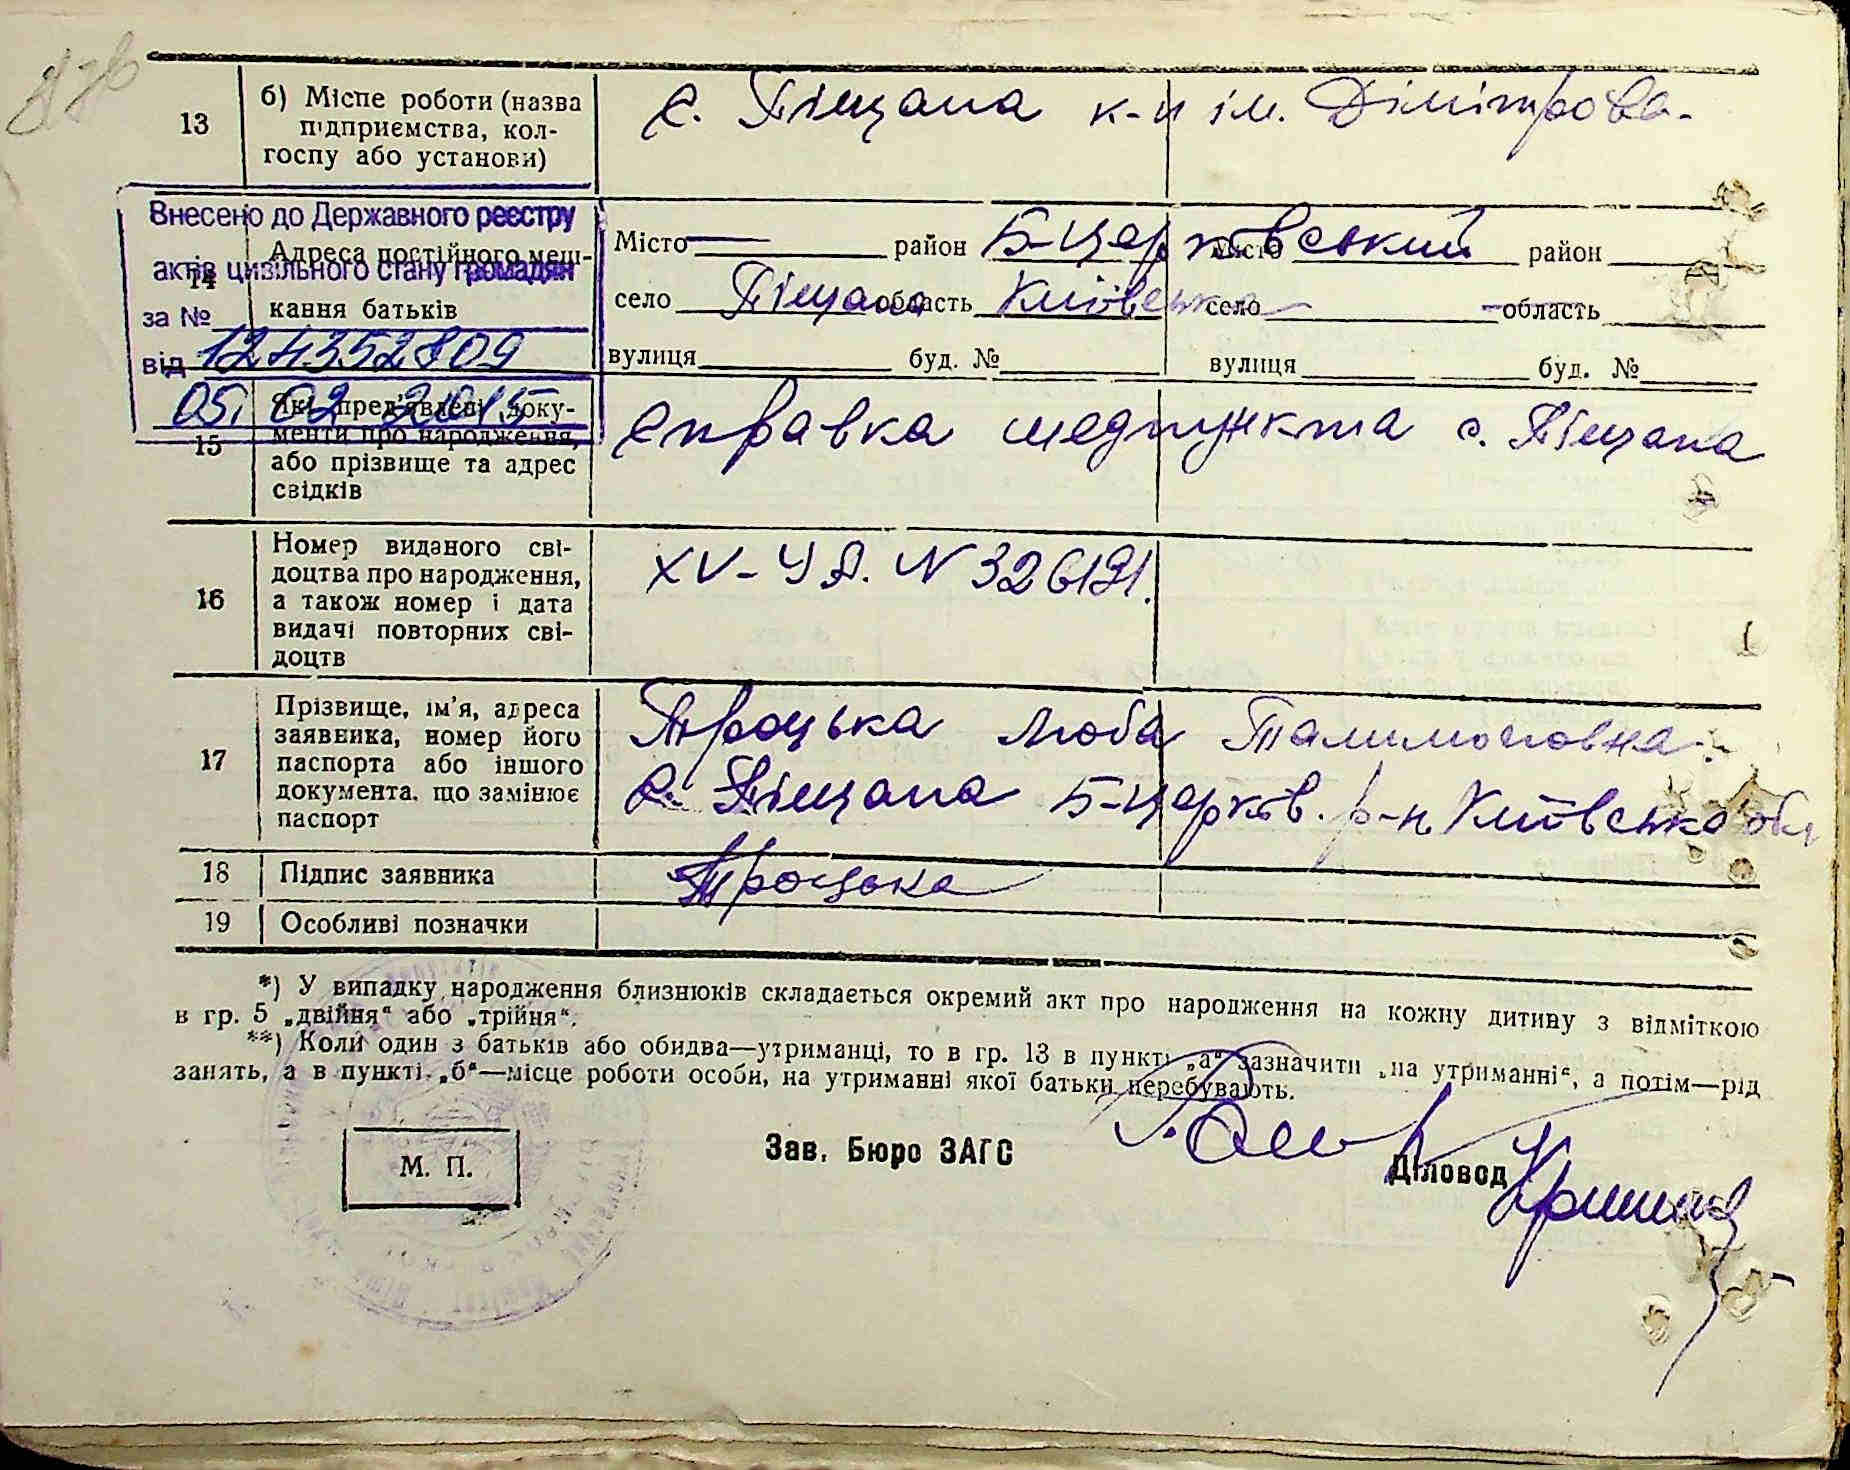 13
б) Місце роботи (назва
підприємства, кол-
госпу або установи)
с. Піщана к-п ім. Дімітрова.
Внесено до Державного реєстру
актів цивільного стану громадян
за №
124352809
від
05. 02 2015
14
Адреса постійного меш-
кання батьків
Місто — район Б-церківський
село Піщана область Київська
вулиця буд. №
Місто район
село область
вулиця буд. №
15
Які пред'явлені доку-
менти про народження,
або прізвище та адрес
свідків
справка медпункта с. Піщана
16
Номер виданого сві-
доцтва про народження,
а також номер і дата
видачі повторних сві-
доцтв
XV-УЯ. N 326191.
17
Прізвище, ім'я, адреса
заявника, номер його
паспорта або іншого
документа, що замінює
паспорт
Троцька Люба
с. Піщана Б-церків. р-н Київська обл
18
Підпис заявника
Троцька
19
Особливі позначки
*) У випадку народження близнюків складається окремий акт про народження на кожну дитину з відміткою
в гр. 5 „двійня“ або „трійня“.
**) Коли один з батьків або обидва—утриманці, то в гр. 13 в пункті „а“ зазначити „на утриманні“, а потім—рід
занять, а в пункті „б“—місце роботи особи, на утриманні якої батьки перебувають.
М. П.
Зав. Бюро ЗАГС
Діловод